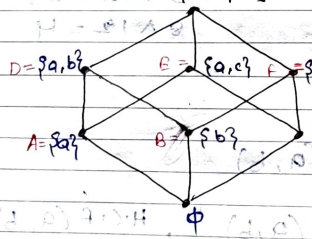 D={a,b} E= {a,c} F={
A={a} B= {b}
Φ